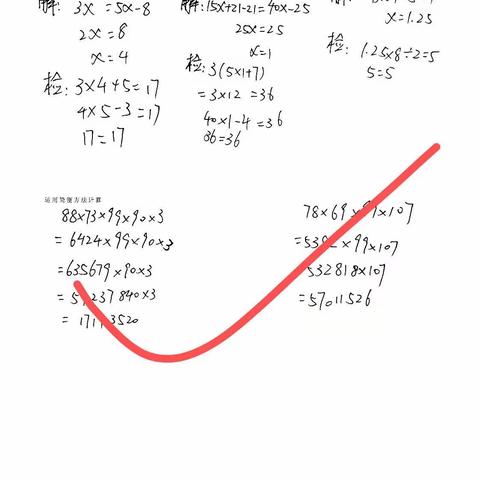 解: 3x = 5x-8
2x = 8
x = 4
检: 3×4+5=17
4×5-3=17
17=17
解: 15x+21-21=40x-25
25x=25
x=1
检: 3(5×1+7)
=3×12 =36
40×1-4=36
36=36
x=1.25
检: 1.25×8÷2=5
5=5
运用简便方法计算
88×73×99×90×3
=6424×99×90×3
=635679×90×3
237840×3
3520
78×69××107
×99×107
532818×107
=57011526